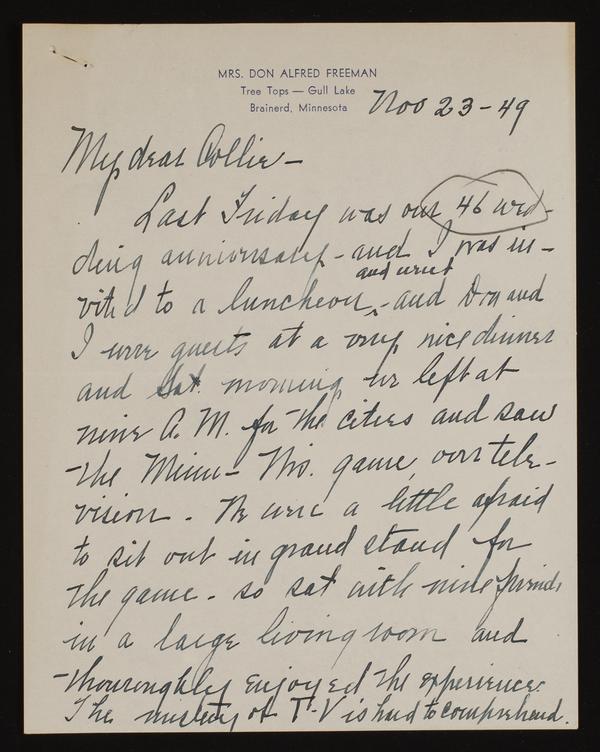 MRS. DON ALFRED FREEMAN
Tree Tops — Gull Lake
Brainerd, Minnesota
Nov 23-49
My dear Collie -
Last Friday was our 46 wed-
ding anniversary - and I was in-
and went
vited to a luncheon, - and Don and
I were guests at a very nice dinner
and Sat. morning we left at
nine A.M. for the cities and saw
the Minn - Wis. game over tele-
vision - We were a little afraid
to sit out in grand stand for
the game - so sat with nine friends
in a large living room and
thouroughly enjoyed the experience.
The mistery of T-V is hard to comprehend.